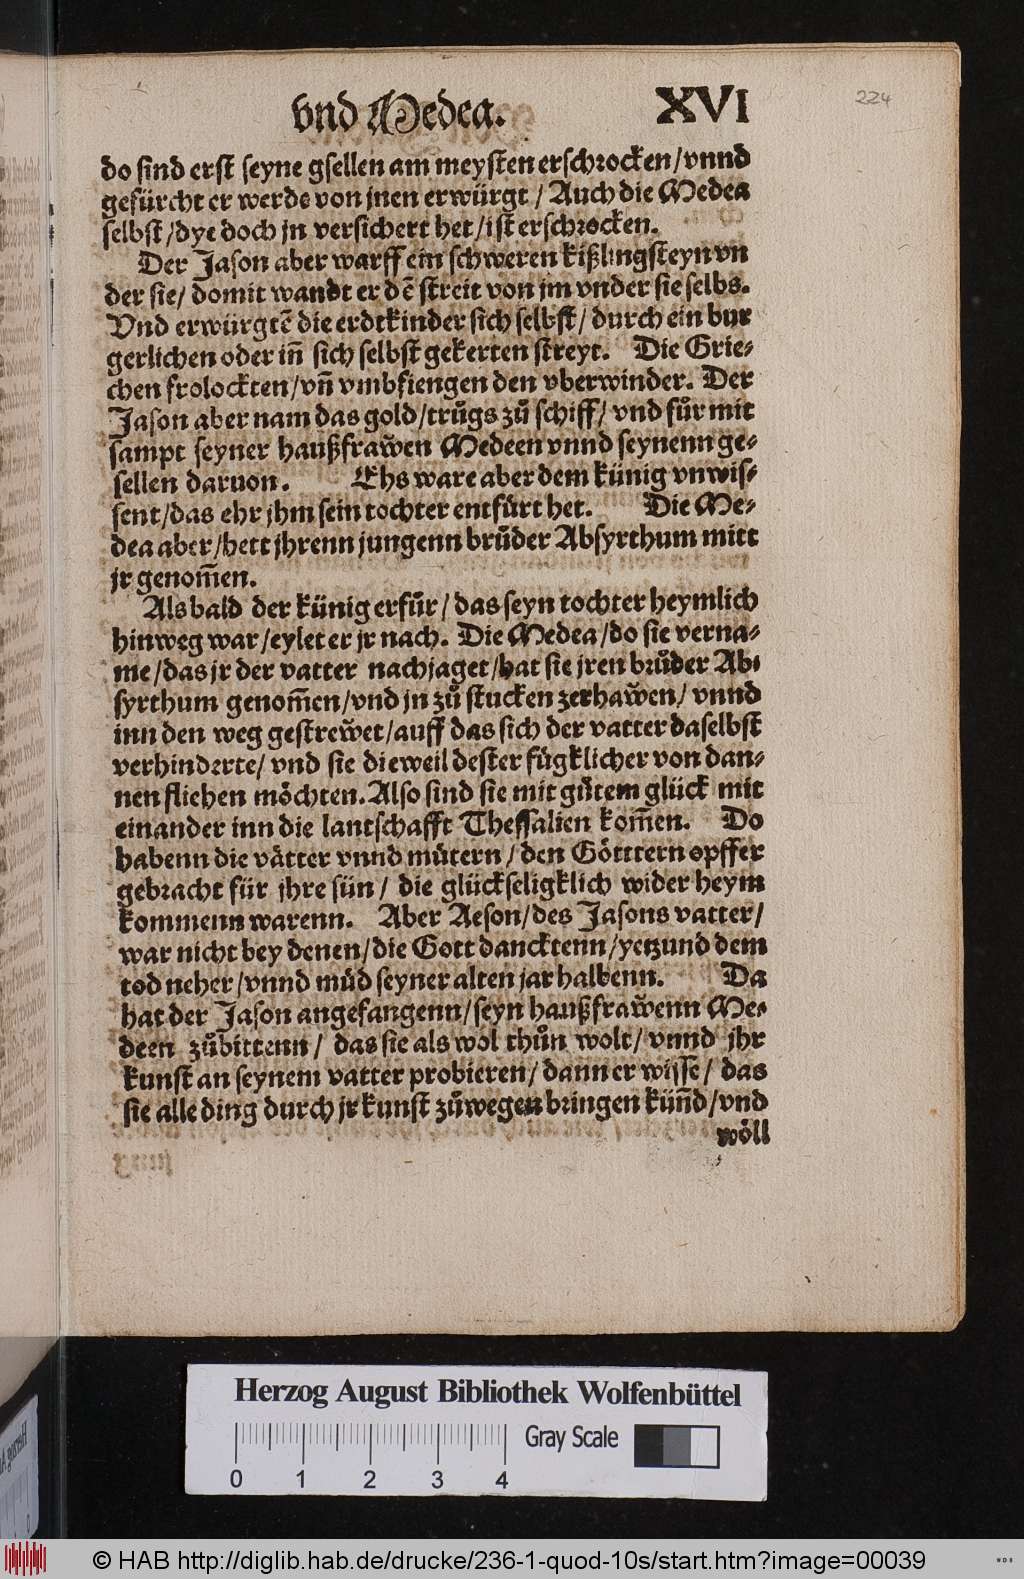 vnd Medea.
XVI
224
do sind erst seyne gsellen am meysten erschrocken/vnnd
gefürcht er werde von jnen erwürgt/Auch die Medea
selbst/dye doch jn versichert het/ist erschrocken.
Der Jason aber warff ein schweren kißlingsteyn vn
der sie/domit wandt er dē streit von jm vnder sie selbs.
Vnd erwürgtē die erdtkinder sich selbst/durch ein bur
gerlichen oder in̄ sich selbst gekerten streyt. Die Grie-
chen frolockten/vn̄ vmbfiengen den vberwinder. Der
Jason aber nam das gold/trůgs zů schiff/vnd fůr mit
sampt seyner haußfrawͤen Medeen vnnd seynenn ge-
sellen daruon. Ehs ware aber dem künig vnwis-
sent/das ehr jhm sein tochter entfürt het. Die Me-
dea aber/hett jhrenn jungenn brůder Absyrthum mitt
jr genom̄en.
Als bald der künig erfůr/das seyn tochter heymlich
hinweg war/eylet er jr nach. Die Medea/do sie verna-
me/das jr der vatter nachjaget/hat sie jren brůder Ab-
syrthum genom̄en/vnd jn zů stucken zerhawͤen/vnnd
inn den weg gestrewͤet/auff das sich der vatter daselbst
verhinderte/vnd sie dieweil dester fügklicher von dan-
nen fliehen möchten. Also sind sie mit gůtem glück mit
einander inn die lantschafft Thessalien kom̄en. Do
habenn die vätter vnnd můtern/den Götttern opffer
gebracht für jhre sün/die glückseligklich wider heym
kommenn warenn. Aber Aeson/des Jasons vatter/
war nicht bey denen/die Gott dancktenn/yetzund dem
tod neher/vnnd můd seyner alten jar halbenn. Da
hat der Jason angefangenn/seyn haußfrawͤenn Me-
deen zůbittenn/das sie als wol thůn wolt/vnnd jhr
kunst an seynem vatter probieren/dann er wisse/das
sie alle ding durch jr kunst zůwegen bringen kün̄d/vnd
wöll
Herzog August Bibliothek Wolfenbüttel
Gray Scale
0 1 2 3 4
© HAB http://diglib.hab.de/drucke/236-1-quod-10s/start.htm?image=00039